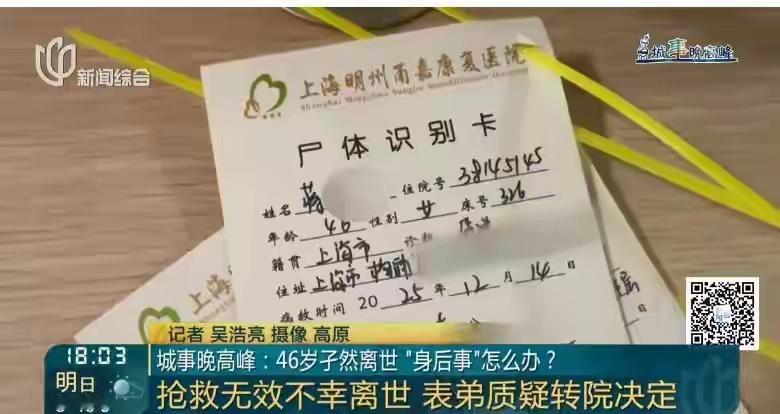 新闻综合
城事晚高峰
上海明州甬嘉康复医院
尸体识别卡
姓名 蒋 住院号 38145145
年龄 46 性别 女 床号 326
籍贯 上海市 诊断
住址 上海市
病故时间 2025年12月14日
上海
记者 吴浩亮 摄像 高原
18:03
明日
城事晚高峰：46岁孑然离世 "身后事"怎么办？
抢救无效不幸离世 表弟质疑转院决定